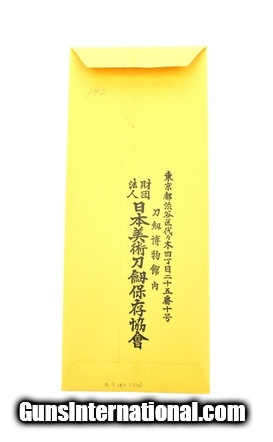 192
東京都渋谷区代々木四丁目二十五番十号
刀劔博物館内
財団法人
日本美術刀劔保存協會
GunsInternational.com